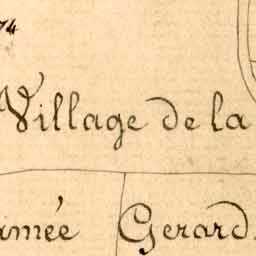 74
Village de la
aimée Gerard.